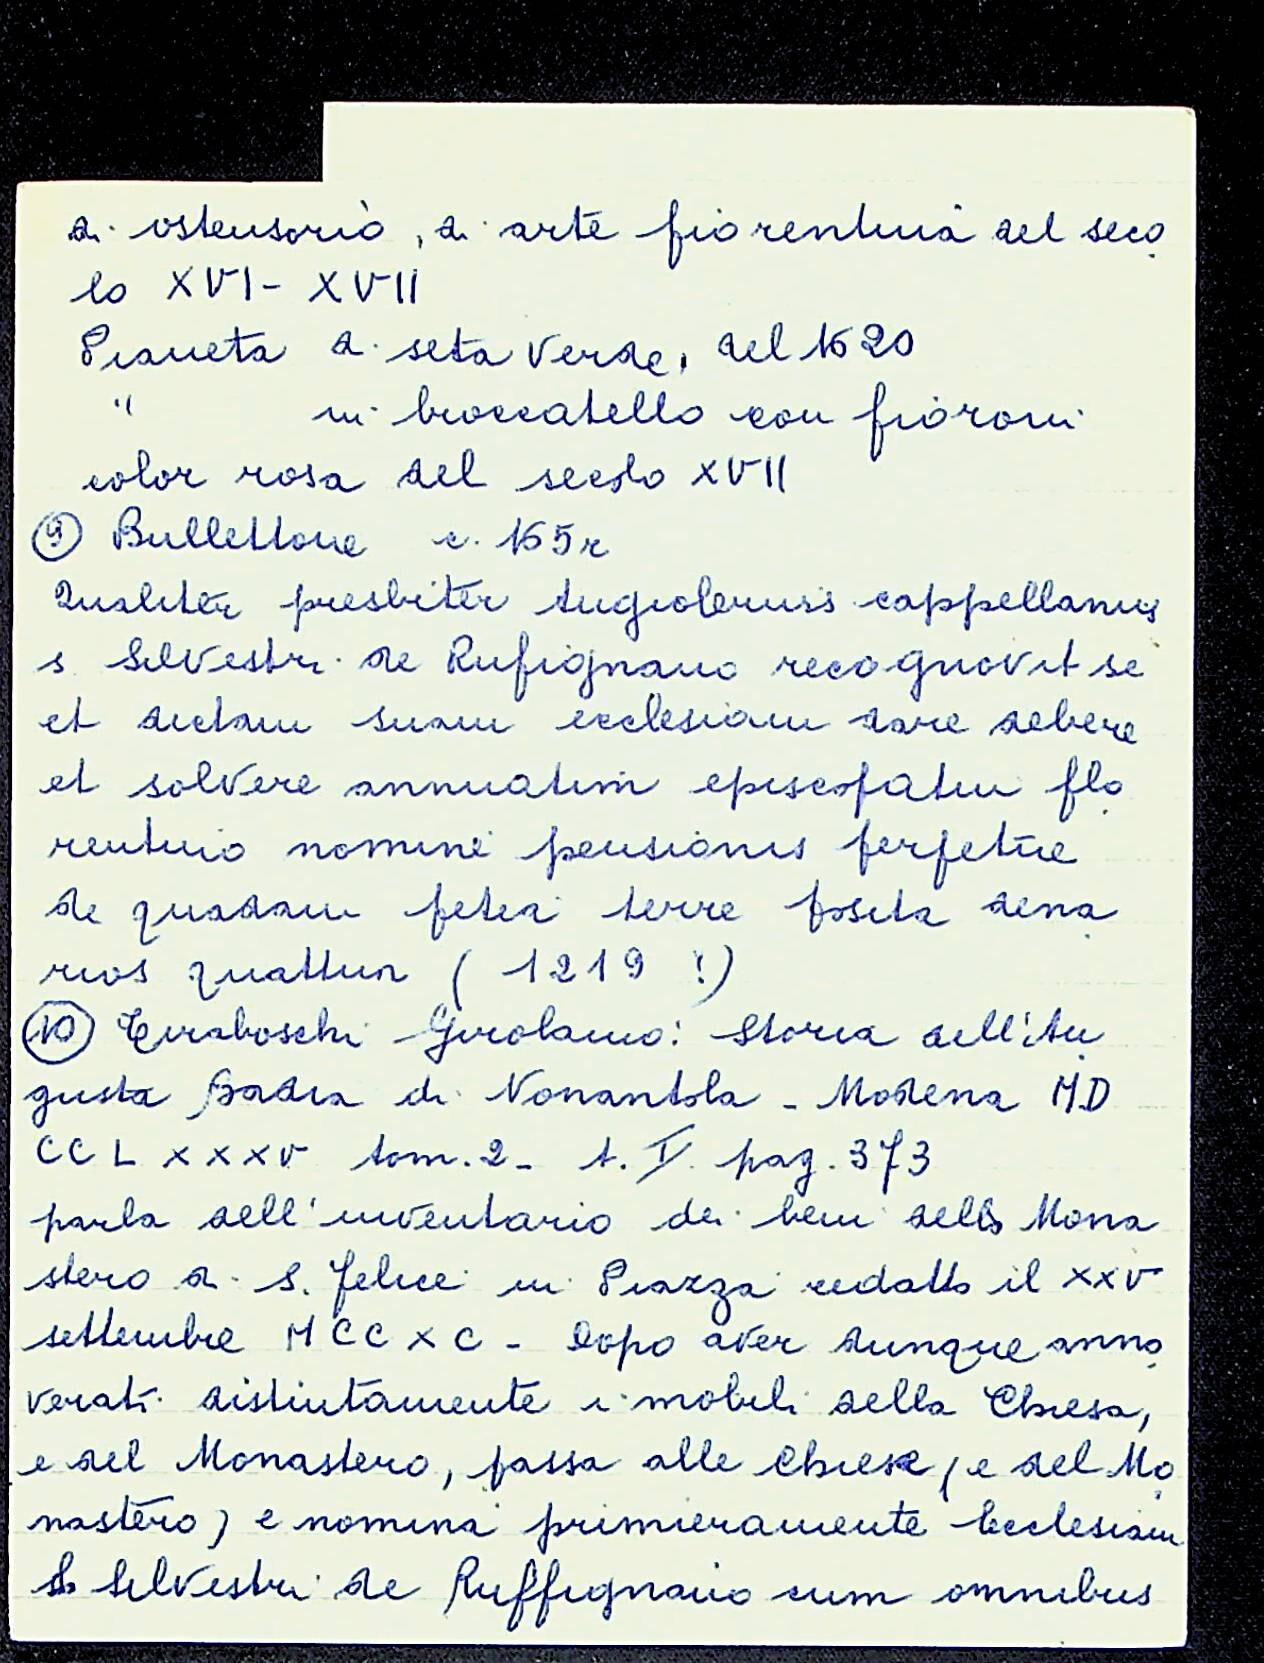 di ostensorio, di arte fiorentina del seco
lo XVI - XVII
Pianeta di seta verde, del 1620
" in broccatello con fioroni
color rosa del secolo XVII
⑨ Bullettone c. 165r
Qualiter presbiter cappellanus
s. Silvestri de Rufignano recognovit se
et dictam suam ecclesiam dare debere
et solvere annuatim episcopatui flo
rentino nomine pensionis perpetue
de quadam petia terre posita dena
rios quattuor (1219 !)
⑩ Tiraboschi Girolamo: Storia dell'Au
gusta Badia di Nonantola - Modena MD
CCLXXXV tom. 2 - t. V. pag. 373
parla dell'inventario dei beni dello Mona
stero di S. Felice in Piazza redatto il XXV
settembre MCCXC - Dopo aver dunque anno
verati distintamente i mobili della Chiesa,
e del Monastero, passa alle Chiese (e del Mo
nastero) e nomina primieramente Ecclesiam
S. Silvestri de Ruffignano cum omnibus